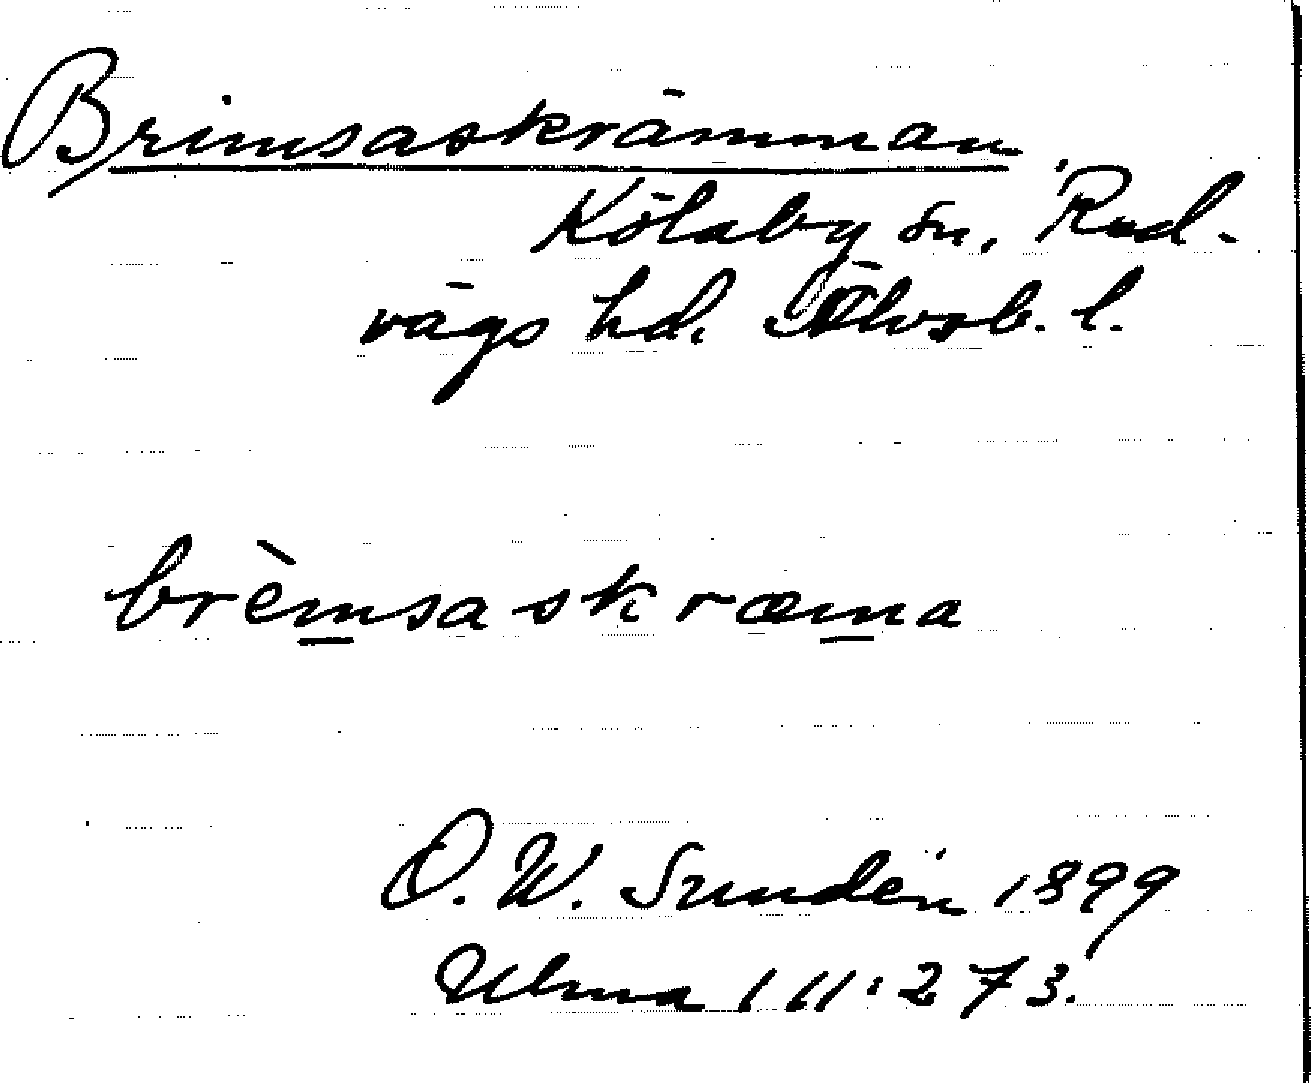 Brimsaskrämman
Kölaby sn, Red-
vägs hd. Älvsb. l.
brèmsaskræma
O. W. Sundén 1899
Ulma 111:273.